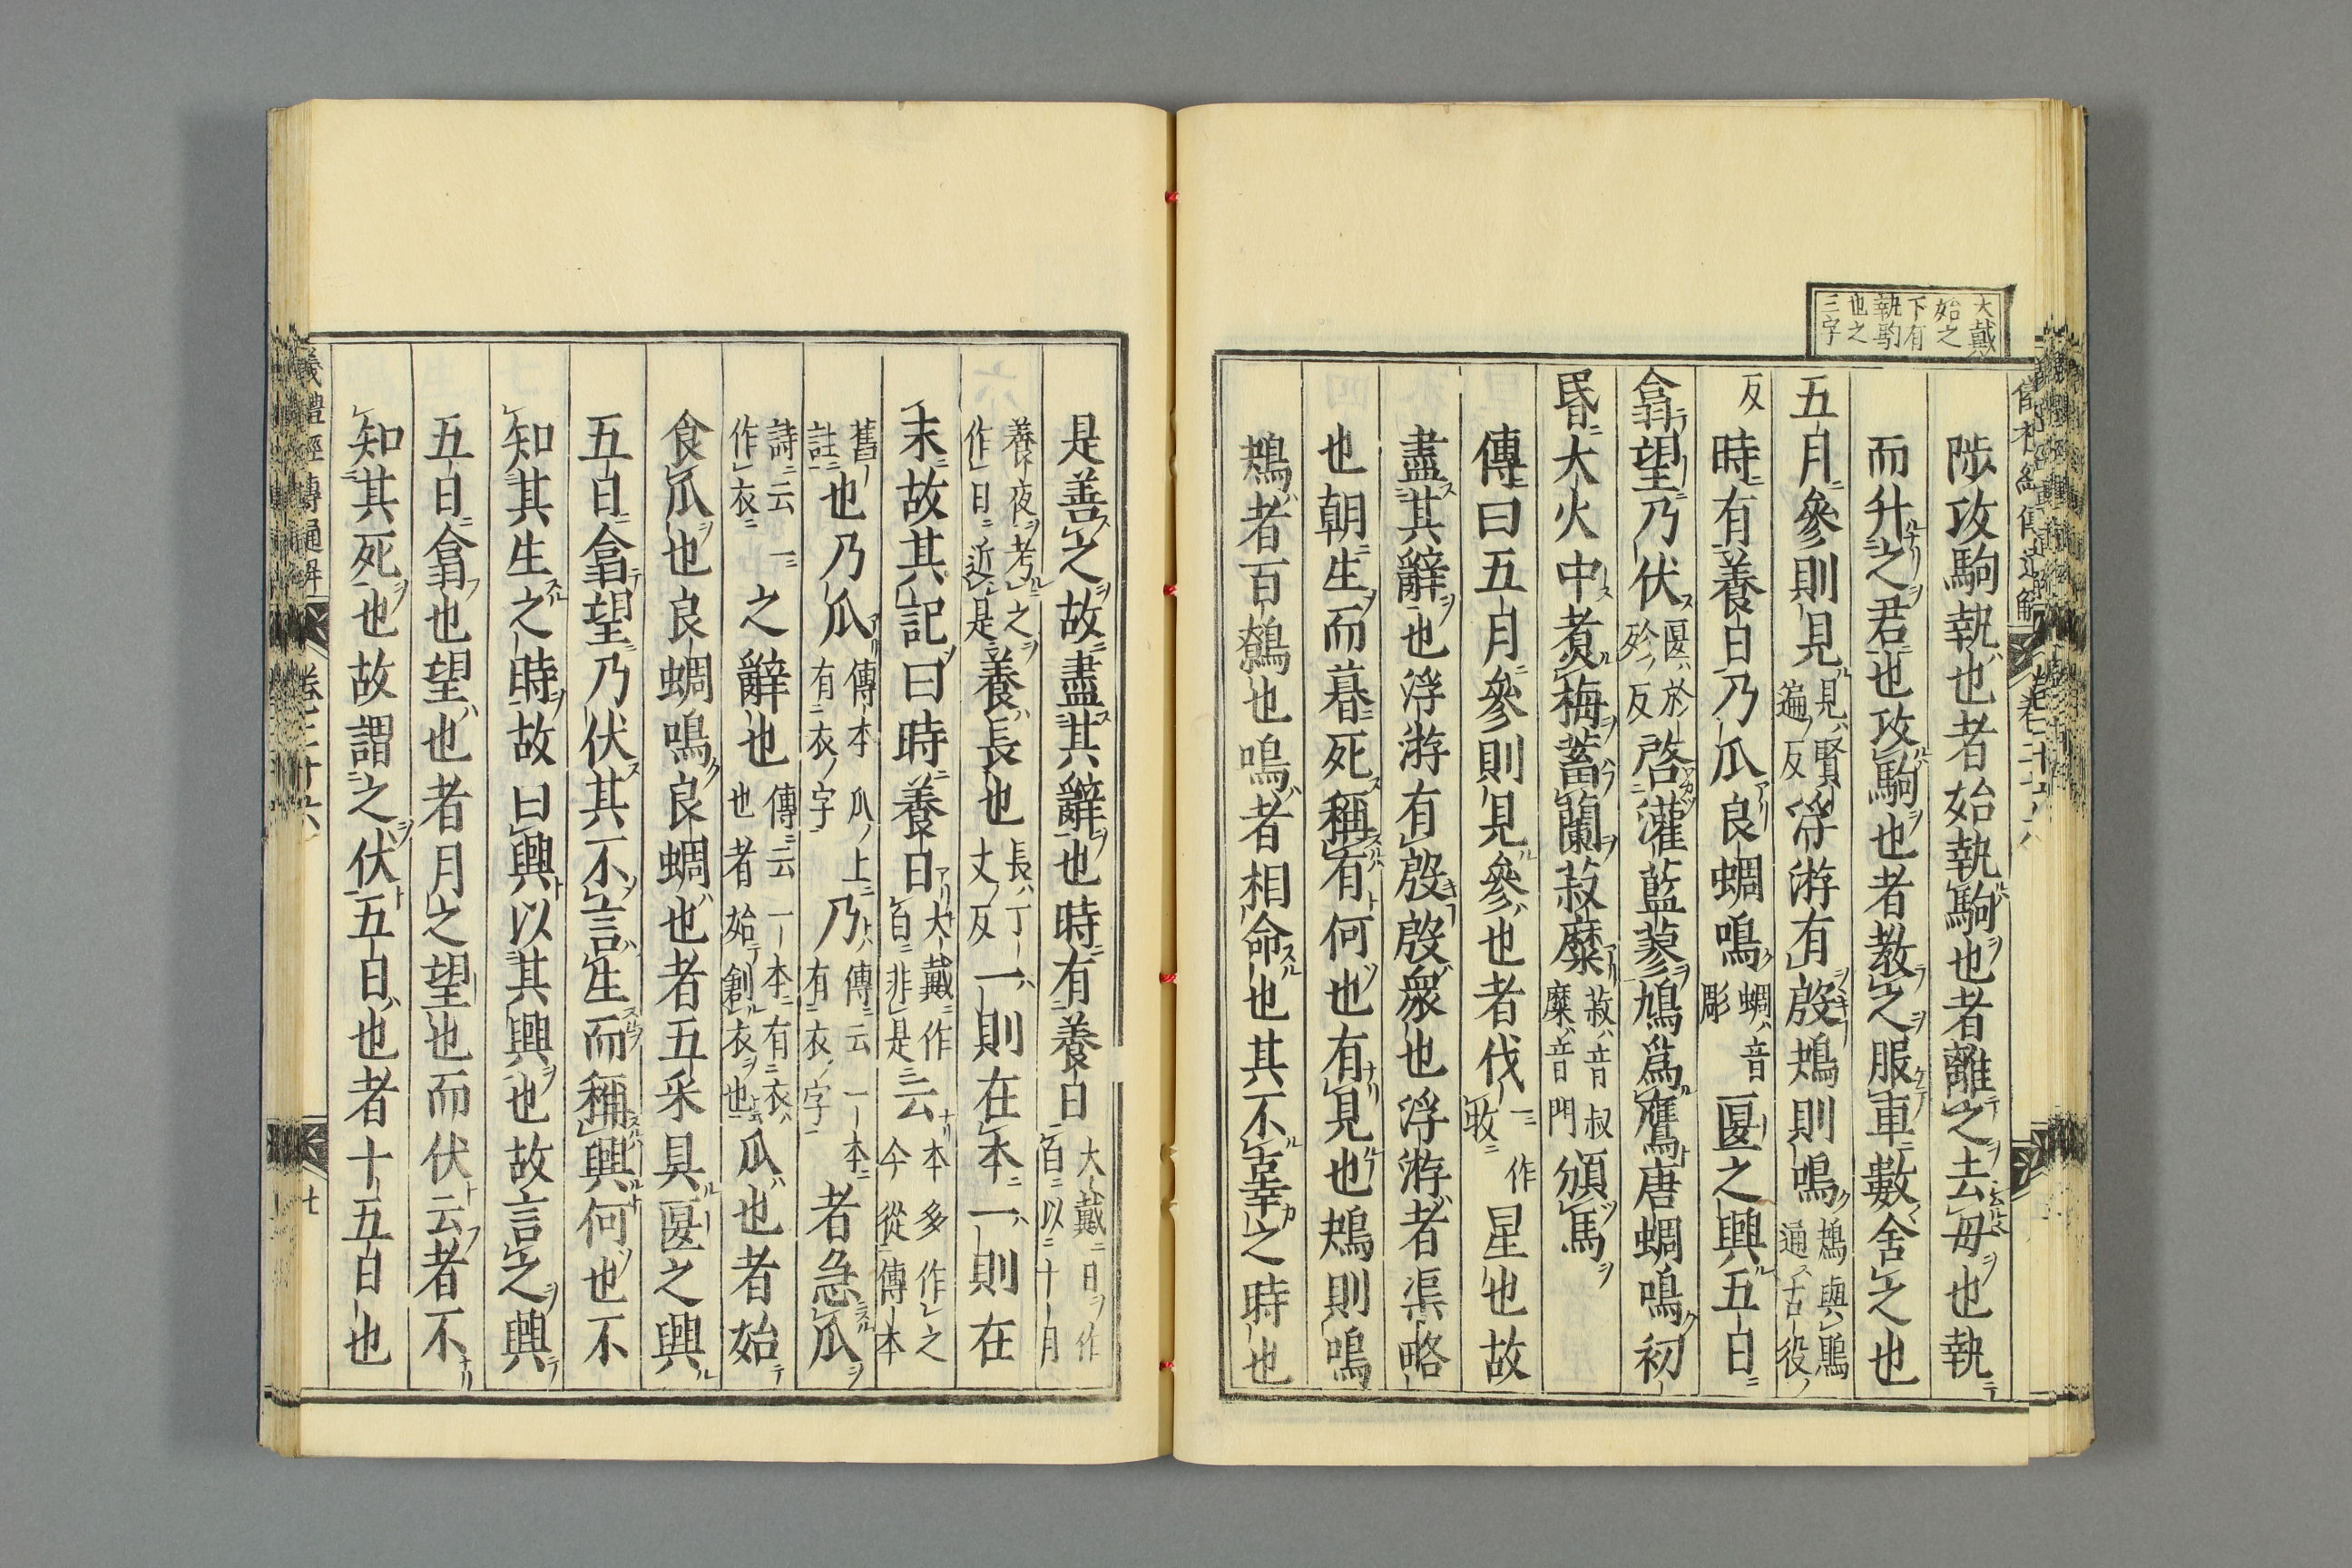 大戴
始之
下有
執駒
也之
三字
陟攻駒執也者始執駒也者離之去母也執
而升之君也攻駒也者教之服車數舍之也
五月參則見見賢遍反浮游有殷鴂則鳴鴂與鶪通古役
反時有養白乃瓜良蜩鳴蜩音彫匽之興五日
翕望乃伏匽於殄反啓灌藍蓼鳩爲鷹唐蜩鳴初
昏大火中煮梅蓄蘭菽糜菽音叔糜音門頒馬
傳曰五月參則見參也者伐一作牧星也故
盡其辭也浮游有殷殷衆也浮游者渠略
也朝生而暮死稱有何也有見也鴂則鳴
鴂者百鷯也鳴者相命也其不辜之時也
是善之故盡其辭也時有養白大戴日作百以十月
養夜考之作日近是養長也長丁丈反一則在本一則在
末故其記曰時養白大戴作百非是云本多作之今從傳本
舊註也乃瓜傳本瓜上有衣字乃傳云一本有衣字者急瓜
詩云一作衣之辭也傳云一本有衣也者始創衣也瓜也者始
食瓜也良蜩鳴良蜩也者五采具匽之興
五日翕望乃伏其不言生而稱興何也不
知其生之時故曰興以其興也故言之興
五日翕也望也者月之望也而伏云者不
知其死也故謂之伏五日也者十五日也
儀禮經傳通解 卷二十六 七